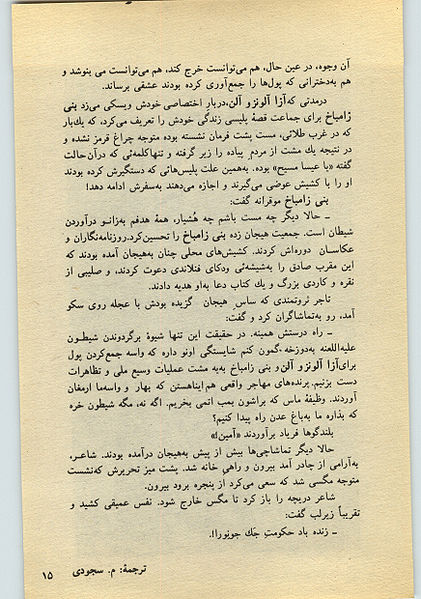 آن وجوه، در عین حال، هم می‌توانست خرج کند، هم می‌توانست می بنوشد و
هم به‌دخترانی که پول‌ها را جمع‌آوری کرده بودند عشقی برساند.
درمدتی که آزا آلونزو آلن، دربار اختصاصی خودش ویسکی می‌زد بنی
زامباخ برای جماعت قصهٔ پلیسی زندگی خودش را تعریف می‌کرد، که یك‌بار
که در غرب طلائی، مست پشت فرمان نشسته بوده متوجه چراغ قرمز نشده و
در نتیجه یك مشت از مردم پیاده را زیر گرفته و تنهاکلمه‌ئی که درآن حالت
گفته «یا عیسا مسیح» بوده. به‌همین علت پلیس‌هائی که دستگیرش کرده بودند
او را با کشیش عوضی می‌گیرند و اجازه می‌دهند به‌سفرش ادامه دهد!
بنی زامباخ موقرانه گفت:
ـ حالا دیگر چه مست باشم چه هُشیار، همهٔ هدفم به‌زانو درآوردن
شیطان است. جمعیت هیجان زده بنی زامباخ را تحسین‌کرد. روزنامه‌نگاران و
عکاسان دوره‌اش کردند. کشیش‌های محلی چنان به‌هیجان آمده بودند که
این مقرب صادق را به‌شیشه‌ئی ودکای فنلاندی دعوت کردند، و صلیبی از
نقره و کاردی بزرگ و یك کتاب دعا به‌او هدیه دادند.
تاجر ثروتمندی که ساس هیجان گزیده بودش با عجله روی سکو
آمد، رو به‌تماشاگران کرد و گفت:
ـ راه درستش همینه. در حقیقت این تنها شیوهٔ برگردوندن شیطون
علیه‌اللعنه به‌دوزخه. گمون کنم شایستگی اونو داره که واسه جمع‌کردن پول
برای آزا آلونزو آلن و بنی زامباخ به‌یه مشت عملیات وسیع ملی و تظاهرات
دست بزنیم. پرنده‌های مهاجر واقعی هم اینا‌هستن که بهار و‌واسه‌ما ارمغان
آوردند. وظیفهٔ ماس که براشون بمب اتمی بخریم. اگه نه، مگه شیطون خره
که بذاره ما به‌باغ عدن راه پیدا کنیم؟
بلندگوها فریاد برآوردند «آمین!»
حالا دیگر تماشاچی‌ها بیش از پیش به‌هیجان درآمده بودند. شاعر،
به‌آرامی از چادر آمد بیرون و راهیِ خانه شد. پشت میز تحریرش که‌نشست
متوجه مگسی شد که سعی می‌کرد از پنجره برود بیرون.
شاعر دریچه را باز کرد تا مگس خارج شود. نفس عمیقی کشید و
تقریباً زیرلب گفت:
ـ زنده باد حکومتِ جَك جونورا!.
ترجمهٔ: م. سجودی
۱۵